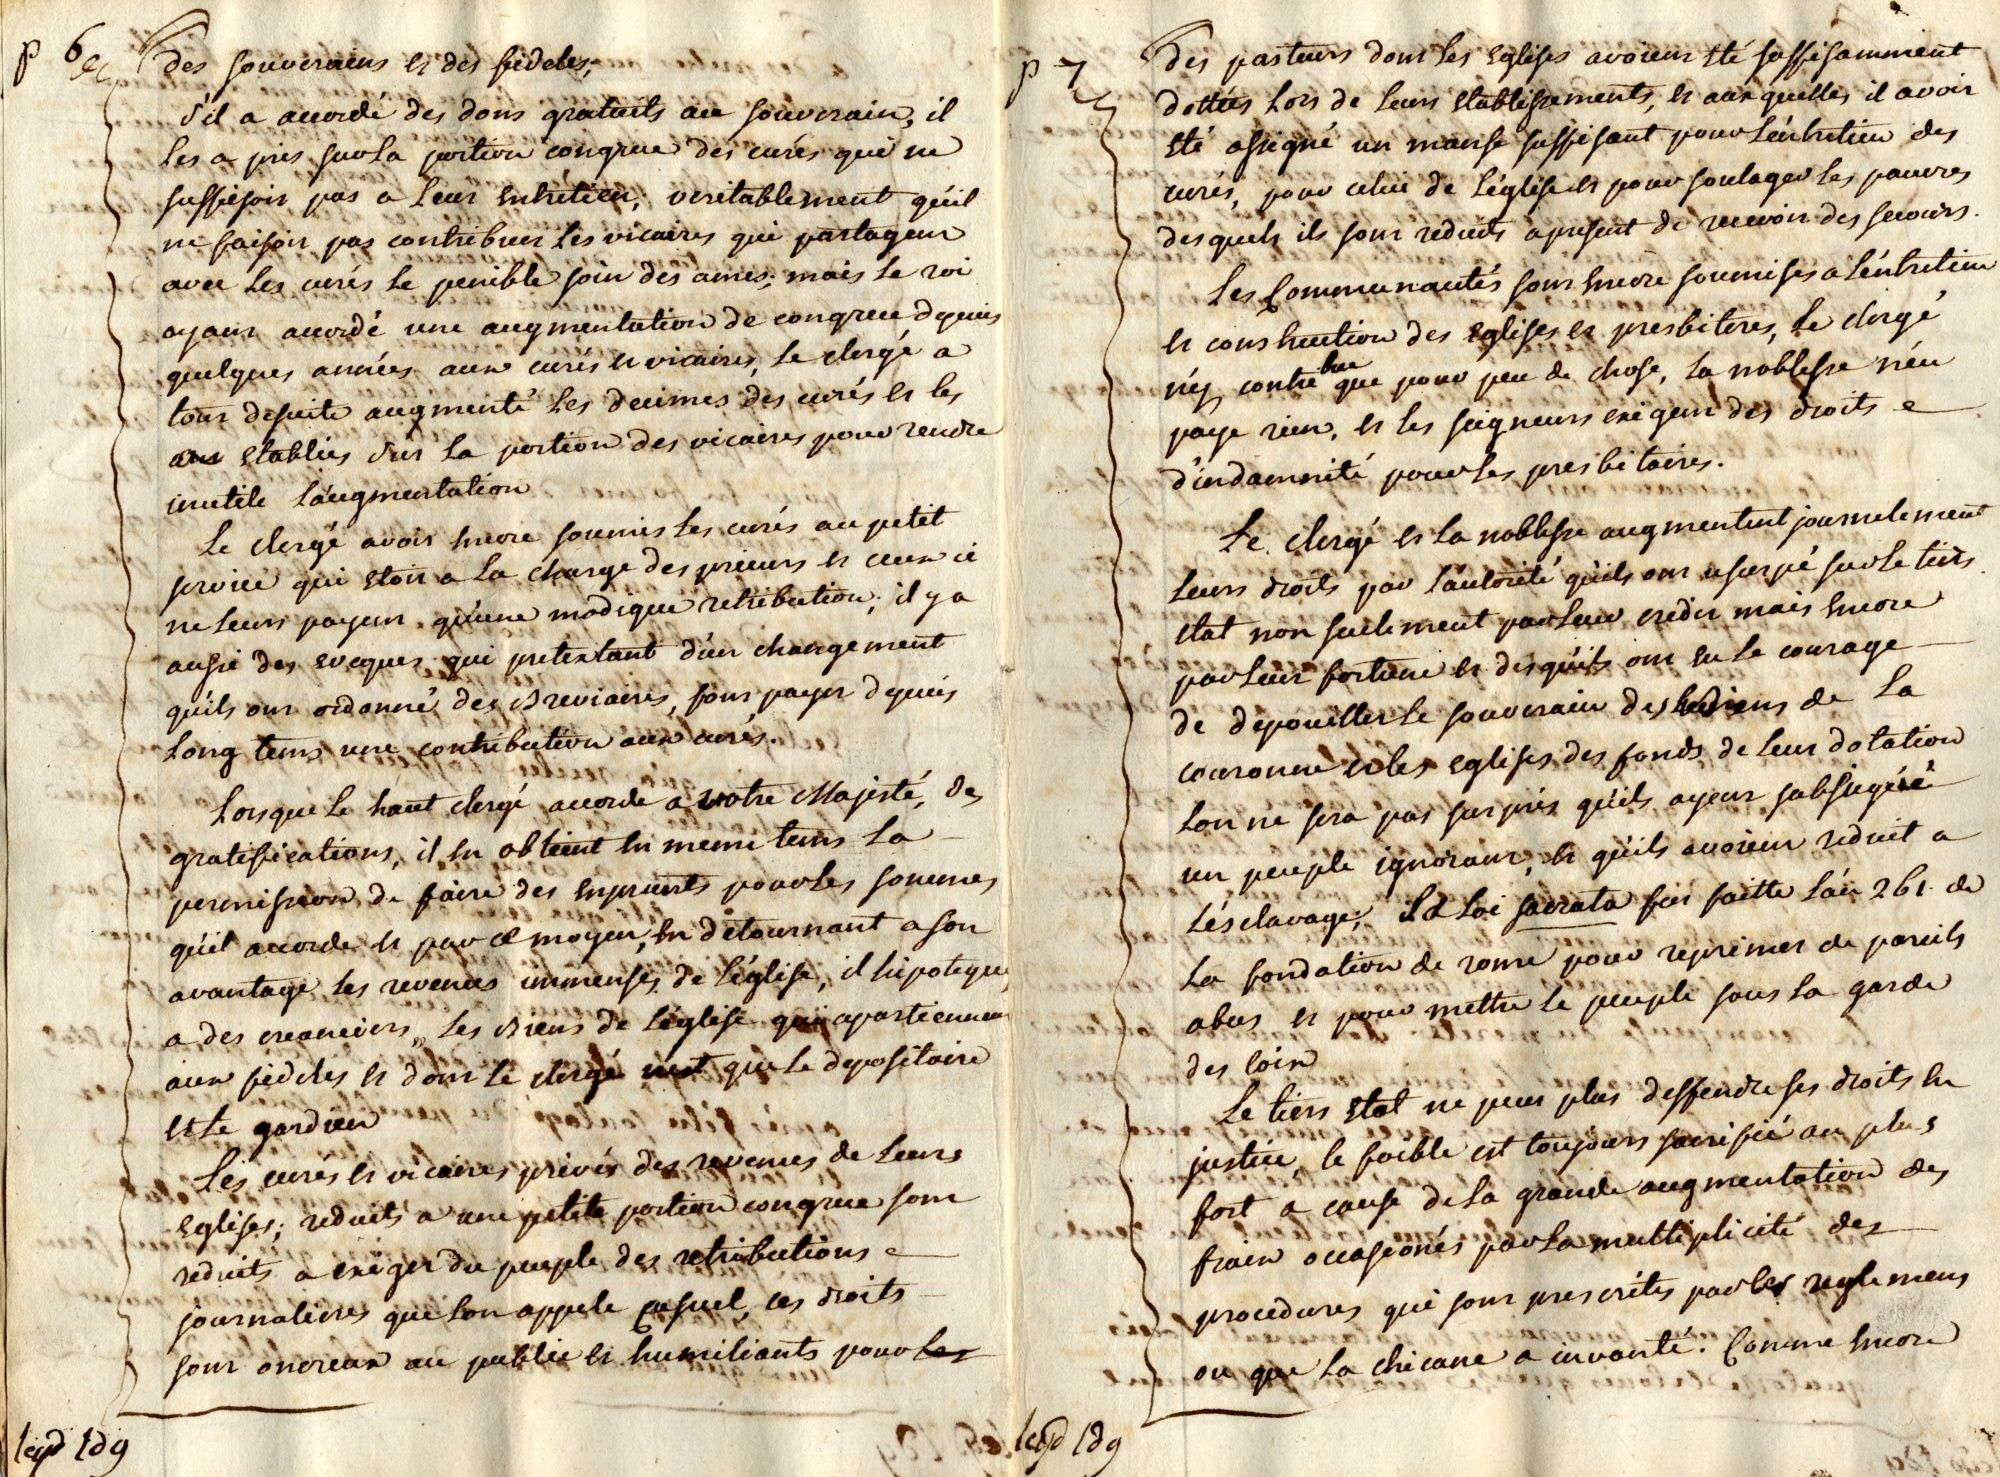 p 6
des souverains et des fideles;
s'il a accordé des dons gratuits au souverain, il
les a pris sur la portion congrue des curés qui ne
suffisoit pas a leur entrétien; veritablement qu'il
ne faisoit pas contribuer les vicaires qui partagent
avec les curés le penible soin des ames; mais le roi
ayant accordé une augmentation de congrue depuis
quelques années aux curés et vicaires, le clergé a
tout desuite augmenté les decimes des curés et les
a établies sur la portion des vicaires pour rendre
inutile l'augmentation
Le clergé avoit encore soumis les curés au petit
service qui etoit a la charge des prieurs et ceux ci
ne leurs payent qu'une modique retribution; il y a
aussi des eveques qui pretextant d'un changement
qu'ils ont ordonné des Breviaires, font payer depuis
long tems une contribution aux curés.
Lorsque le haut clergé accorde a votre Majesté, des
gratifications, il en obtient en meme tems la
permission de faire des enprunts pour les sommes
qu'il accorde et par ce moyen, en detournant a son
avantage les revenus immenses de l'église, il hipoteque
a des creanciers, les Biens de l'église qui apartiennent
aux fideles et dont le clergé n'est que le depositaire
et le gardien
Les curés et vicaires privés des revenus de leurs
eglises; reduits a une petite portion congrue sont
reduits a exiger du peuple des retributions
journalieres que l'on appele Casuel, ces droits
sont onereux au public et humiliants pour les
p 7
des pasteurs dont les eglises avoient eté suffisamment
dottées lors de leurs etablissements, et aux quelles il avoit
eté assigné un manse suffisant pour l'entretien des
curés, pour celui de l'église et pour soulager les pauvres
desquels ils sont reduits a present de recevoir des secours.
Les Communautés sont encore soumises a l'entretien
et construction des eglises et presbiteres, le clergé
n'éy contribue que pour peu de chose, la noblesse n'én
paye rien, et les seigneurs exigent des droits
d'indamnité pour les presbitaires.
Le clergé et la noblesse augmentent journelement
leurs droits par l'autorité qu'ils ont usurpé sur le tiers
etat non seulement par leur credit mais encore
par leur fortune et des qu'ils ont eu le courage
de depouiller le souverain des biens de la
couronne et les eglises des fonds de leur dotation
l'on ne sera pas surpris qu'ils ayent subjugué
un peuple ignorant, et qu'ils avoient reduit a
l'ésclavage; La loi sacrata fut faitte l'an 261 de
la fondation de rome pour reprimer de pareils
abus et pour mettre le peuple sous la garde
des loix
Le tiers etat ne peut plus deffendre ses droits en
justice, le foible est toujours sacrifié au plus
fort a cause de la grande augmentation des
fraix occasionés par la multiplicité des
procedures qui sont prescrites par les reglemens
ou que la chicane a invanté. Comme encore